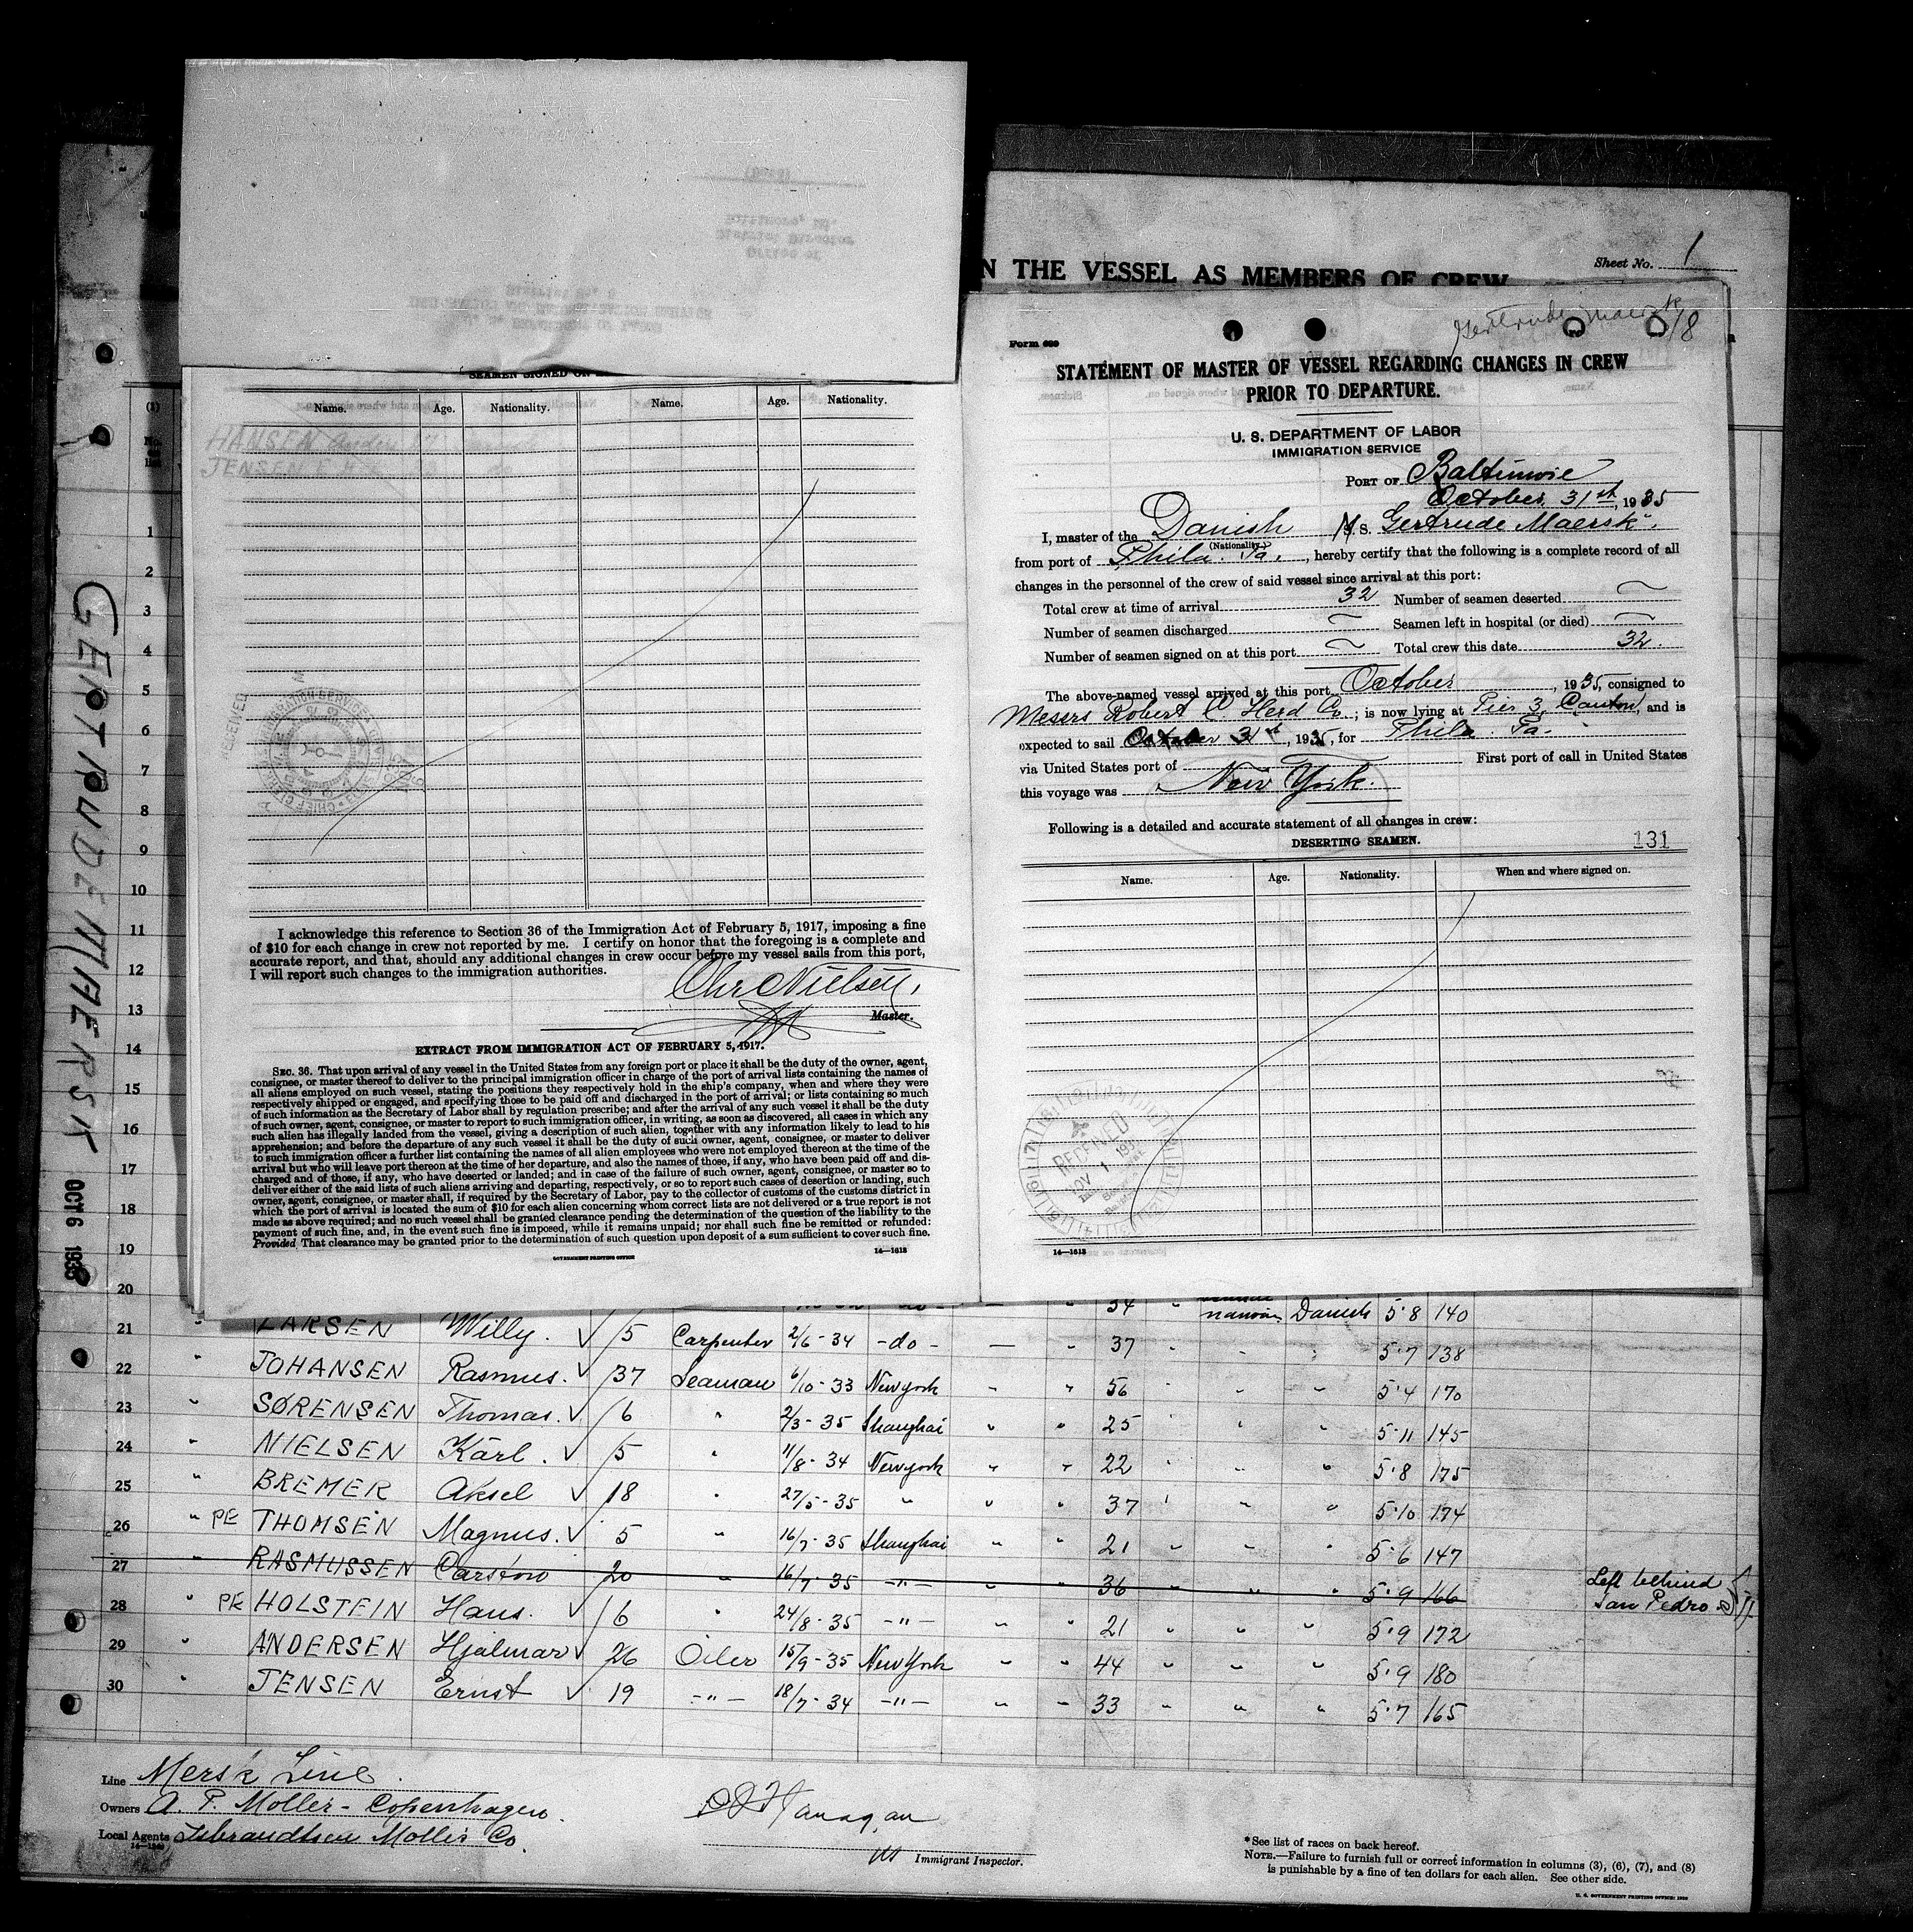 N THE VESSEL AS MEMBERS OF CREW
Sheet No. 1
Gertrude Maersk
18
Form 689
STATEMENT OF MASTER OF VESSEL REGARDING CHANGES IN CREW
PRIOR TO DEPARTURE.
U. S. DEPARTMENT OF LABOR
IMMIGRATION SERVICE
PORT OF Baltimore
October 31st, 1935
I, master of the Danish M S. Gertrude Maersk.
(Nationality.)
from port of Phila. Pa., hereby certify that the following is a complete record of all
changes in the personnel of the crew of said vessel since arrival at this port:
Total crew at time of arrival 32 Number of seamen deserted ~
Number of seamen discharged ~ Seamen left in hospital (or died) ~
Number of seamen signed on at this port ~ Total crew this date 32.
The above-named vessel arrived at this port October, 1935, consigned to
Messrs Robert C Herd Co.; is now lying at Pier 3, Canton, and is
expected to sail October 31st, 1935, for Phila. Pa.
via United States port of First port of call in United States
this voyage was New York.
Following is a detailed and accurate statement of all changes in crew:
DESERTING SEAMEN.
131
Name. Age. Nationality. When and where signed on.
RECEIVED
NOV 1 19
14—1613
SEAMEN SIGNED ON
Name. Age. Nationality. Name. Age. Nationality.
HANSEN
JENSEN
I acknowledge this reference to Section 36 of the Immigration Act of February 5, 1917, imposing a fine
of $10 for each change in crew not reported by me. I certify on honor that the foregoing is a complete and
accurate report, and that, should any additional changes in crew occur before my vessel sails from this port,
I will report such changes to the immigration authorities.
Chr Nielsen,
Master.
EXTRACT FROM IMMIGRATION ACT OF FEBRUARY 5, 1917.
SEC. 36. That upon arrival of any vessel in the United States from any foreign port or place it shall be the duty of the owner, agent,
consignee, or master thereof to deliver to the principal immigration officer in charge of the port of arrival lists containing the names of
all aliens employed on such vessel, stating the positions they respectively hold in the ship's company, when and where they were
respectively shipped or engaged, and specifying those to be paid off and discharged in the port of arrival; or lists containing so much
of such information as the Secretary of Labor shall by regulation prescribe; and after the arrival of any such vessel it shall be the duty
of such owner, agent, consignee, or master to report to such immigration officer, in writing, as soon as discovered, all cases in which any
such alien has illegally landed from the vessel, giving a description of such alien, together with any information likely to lead to his
apprehension; and before the departure of any such vessel it shall be the duty of such owner, agent, consignee, or master to deliver
to such immigration officer a further list containing the names of all alien employees who were not employed thereon at the time of the
arrival but who will leave port thereon at the time of her departure, and also the names of those, if any, who have been paid off and dis-
charged and of those, if any, who have deserted or landed; and in case of the failure of such owner, agent, consignee, or master so to
deliver either of the said lists of such aliens arriving and departing, respectively, or so to report such cases of desertion or landing, such
owner, agent, consignee, or master shall, if required by the Secretary of Labor, pay to the collector of customs of the customs district in
which the port of arrival is located the sum of $10 for each alien concerning whom correct lists are not delivered or a true report is not
made as above required; and no such vessel shall be granted clearance pending the determination of the question of the liability to the
payment of such fine, and, in the event such fine is imposed, while it remains unpaid; nor shall such fine be remitted or refunded:
Provided That clearance may be granted prior to the determination of such question upon deposit of a sum sufficient to cover such fine.
GOVERNMENT PRINTING OFFICE 14—1613
GERTRUDE MAERSK OCT 6 1935
(1)
1
2
3
4
5
6
7
8
9
10
11
12
13
14
15
16
17
18
19
20 34 " Danish 5·8 140
21 " LARSEN Willy. ✓ 15 Carpenter 2/6-34 -do- — " 37 " " " 5·7 138
22 " JOHANSEN Rasmus. ✓ 37 Seaman 6/10-33 New york " " 56 " " " 5·4 170
23 " SØRENSEN Thomas. ✓ 16 " 2/3-35 Shanghai " " 25 " " " 5·11 145
24 " NIELSEN Karl. ✓ 15 " 11/8-34 New york " " 22 " " " 5·8 175
25 " BREMER Aksel ✓ 18 " 27/5-35 " " " 37 " " " 5·10 174
26 " PE THOMSEN Magnus. ✓ 5 " 16/7-35 Shanghai " " 21 " " " 5·6 147
27 " RASMUSSEN Carsten 20 " 16/7-35 -"- " " 36 " " " 5·9 166 Left behind San Pedro
28 " PE HOLSTEIN Hans. ✓ 6 " 24/8-35 -"- " " 21 " " " 5·9 172
29 " ANDERSEN Hjalmar ✓ 26 Oiler 15/9-35 New York " " 44 " " " 5·9 180
30 " JENSEN Ernst ✓ 19 -"- 18/7-34 -"- " " 33 " " " 5·7 165
Line Mersk Line.
Owners A. P. Moller - Copenhagen.
Local Agents Isbrandtsen Moller Co
14—1240
Flanagan
Immigrant Inspector.
*See list of races on back hereof.
NOTE.—Failure to furnish full or correct information in columns (3), (6), (7), and (8)
is punishable by a fine of ten dollars for each alien. See other side.
U. S. GOVERNMENT PRINTING OFFICE: 1930